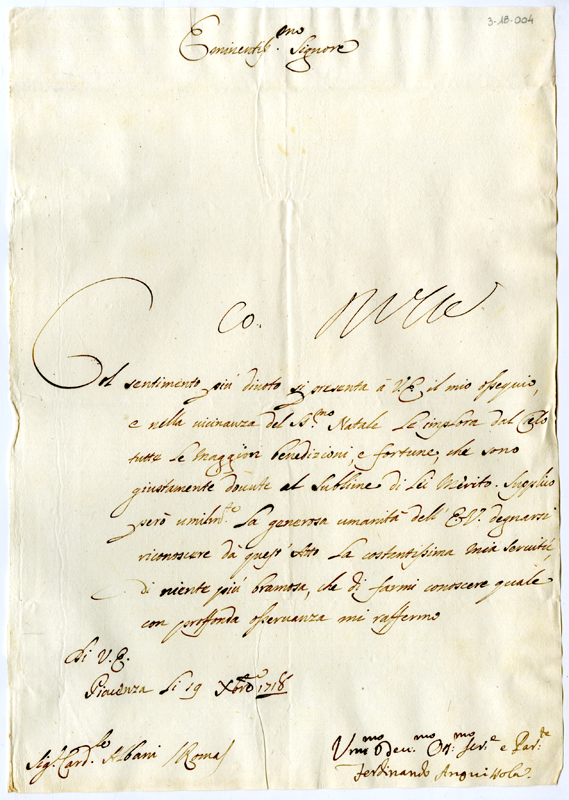 3-18-004
Eminentiss.mo Signore
Co.
Col sentimento più divoto si presenta à V.E. il mio ossequio,
e nella vicinanza del SS.mo Natale le implora dal Cielo
tutte le maggiori benedizioni, e fortune, che sono
giustamente dovute al sublime di Lei Merito. Supplico
però umilm.te la generosa umanità dell'E.V. degnarsi
riconoscere dà quest'Atto la costantissima mia servitù,
di niente più bramosa, che di farmi conoscere quale
con profonda osservanza mi raffermo
Di V.E.
Piacenza li 19 Xbre 1718
Sig.r Card.le Albani /Roma/
Um.mo Dev.mo Obl.mo Ser.e e Par.te
Ferdinando Anguissola.